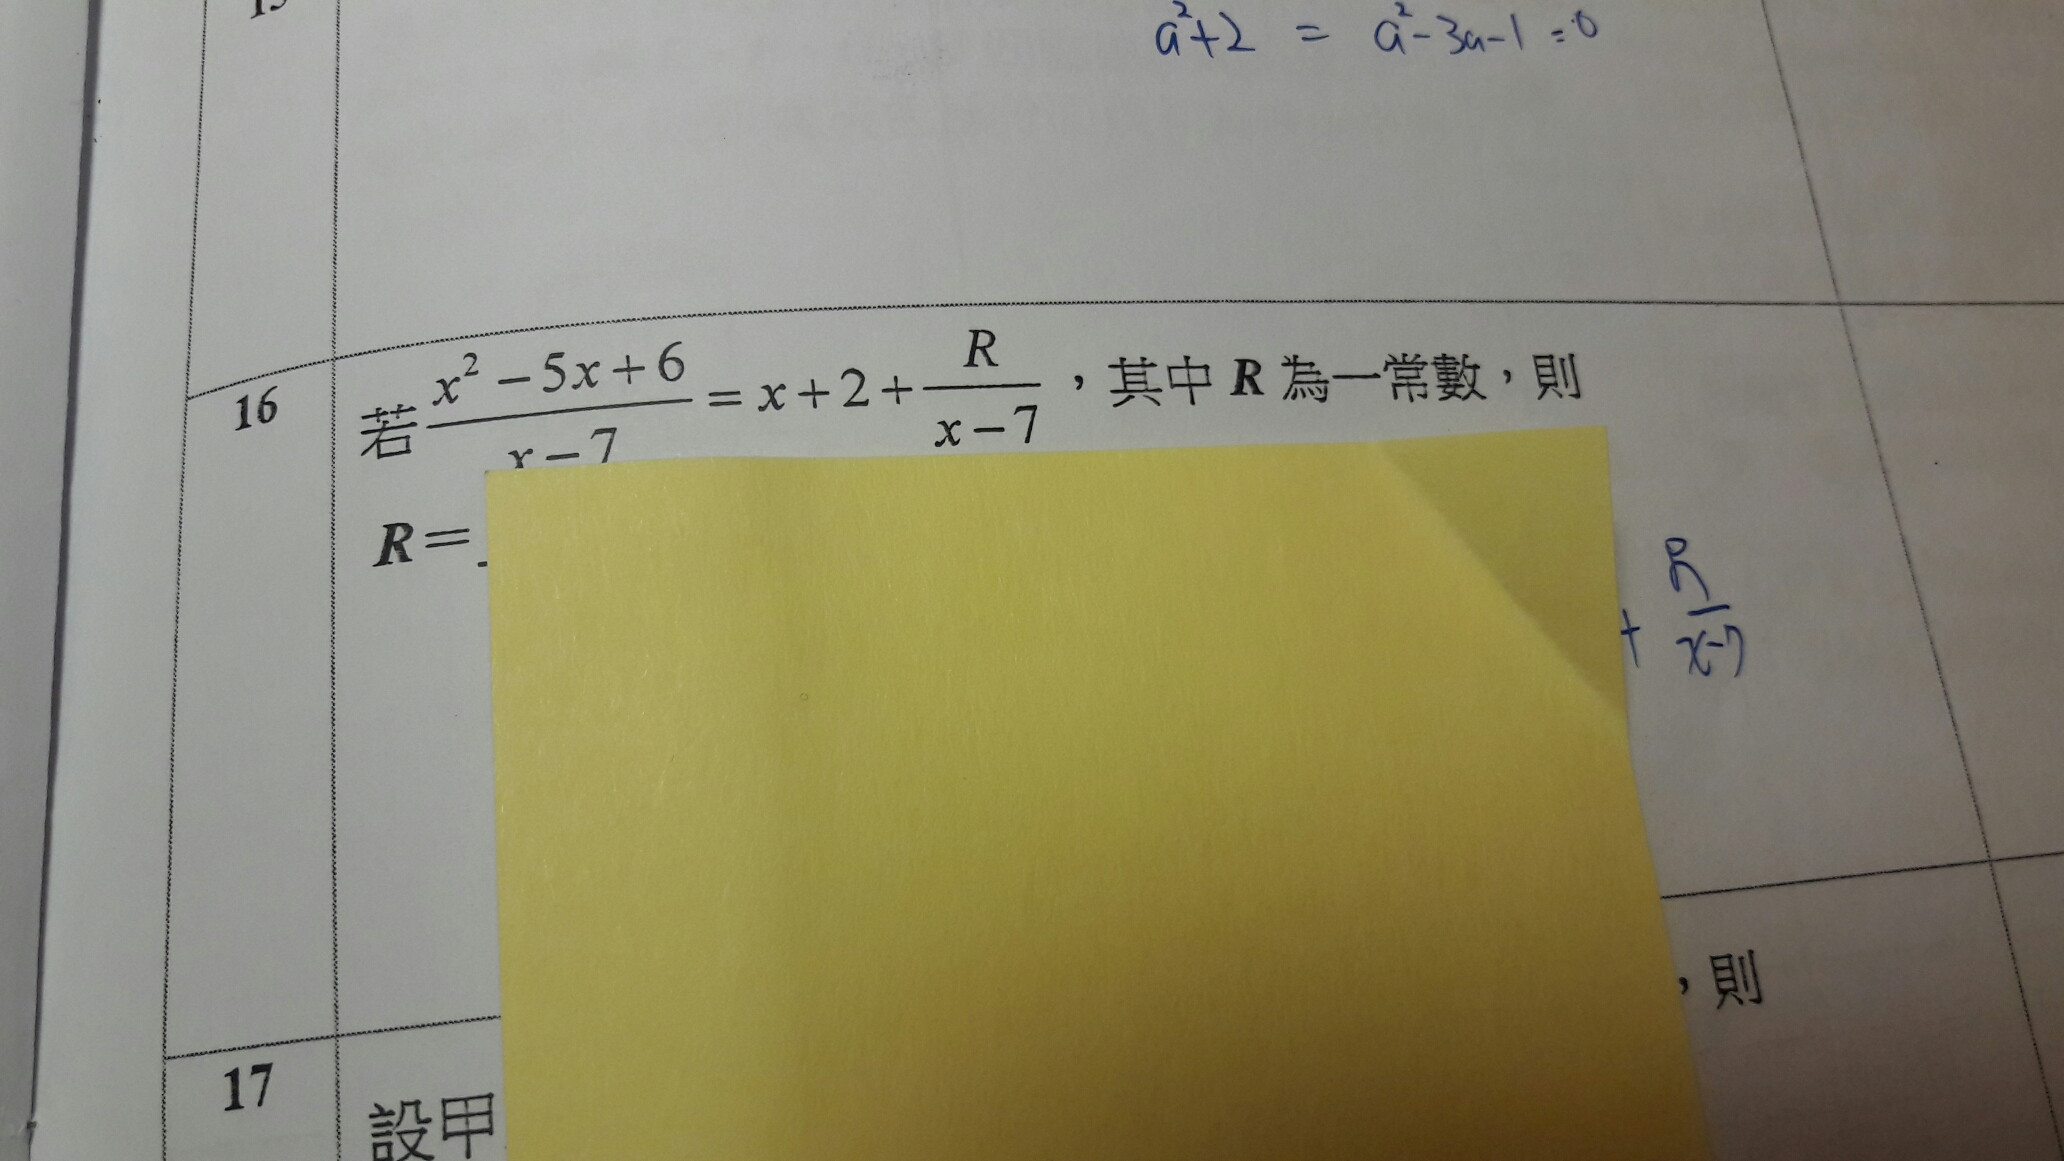 a²+2 = a²-3a-1=0
16 若 \frac{x²-5x+6}{x-7} = x+2+\frac{R}{x-7}，其中 R 為一常數，則
R=
+ \frac{R}{x-7}
，則
17 設甲